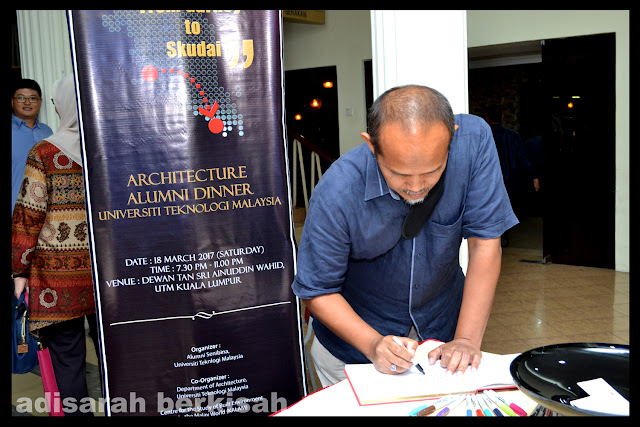 to
Skudai"
ARCHITECTURE
ALUMNI DINNER
UNIVERSITI TEKNOLOGI MALAYSIA
DATE : 18 MARCH 2017 (SATURDAY)
TIME : 7.30 PM - 11.00 PM
VENUE : DEWAN TAN SRI AINUDDIN WAHID,
UTM KUALA LUMPUR
Organizer :
Alumni Senibina,
Universiti Teknologi Malaysia
Co-Organizer :
Department of Architecture,
Universiti Teknologi Malaysia
Centre for the Study of Built Environment
the Malay World (KALAM)
adisarah berkisah